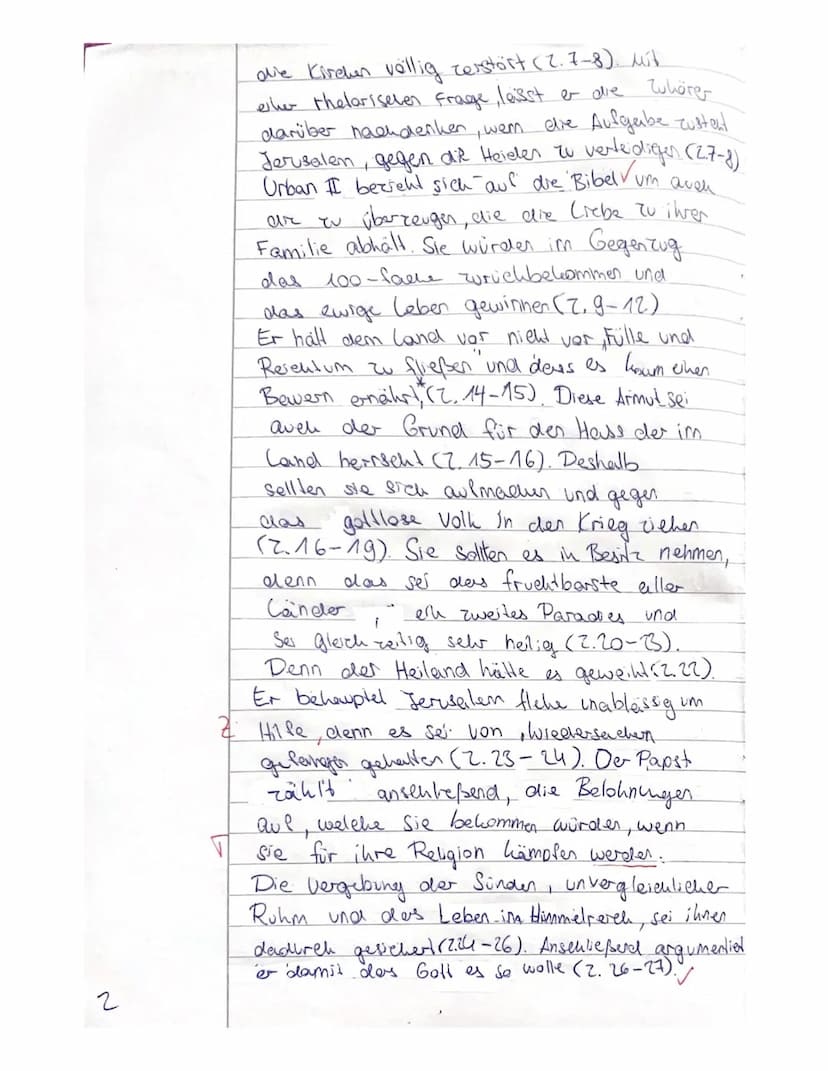 die Kirchen völlig zerstört (Z. 7-8). Mit
einer rhetorischen Frage, lässt er die Zuhörer
darüber nachdenken, wem die Aufgabe zusteht
Jerusalem, gegen die Heiden zu verteidigen (Z.7-8)
Urban II bezieht sich auf die Bibel um auch
die zu überzeugen, die die Liebe zu ihrer
Familie abhält. Sie würden im Gegenzug
das 100-fache zurückbekommen und
das ewige Leben gewinnen (Z. 9-12)
Er hält dem Land vor nicht vor „Fülle und
Reichtum zu fließen" und dass es kaum einen
Bewern ernährt* (Z. 14-15). Diese Armut sei
auch der Grund für den Hass der im
Land herrscht (Z. 15-16). Deshalb
sollten sie sich aufmachen und gegen
das gottlose Volk in den Krieg ziehen
(Z. 16-19). Sie sollten es in Besitz nehmen,
denn das sei das fruchtbarste aller
Länder, ein zweites Paradies und
sei gleichzeitig sehr heilig (Z. 20-23).
Denn der Heiland hätte es geweiht (Z. 22).
Er behauptet Jerusalem flehe unablässig um
Z Hilfe, denn es sei von
gefangen gehalten (Z. 23-24). Der Papst
zählt anschließend, die Belohnungen
auf, welche sie bekommen würden, wenn
sie für ihre Religion kämpfen werden.
Die Vergebung der Sünden, unvergleichlicher
Ruhm und das Leben im Himmelreich, sei ihnen
dadurch gesichert (Z.24-26). Anschließend argumentiert
er damit das Gott es so wolle (Z. 26-27).
2